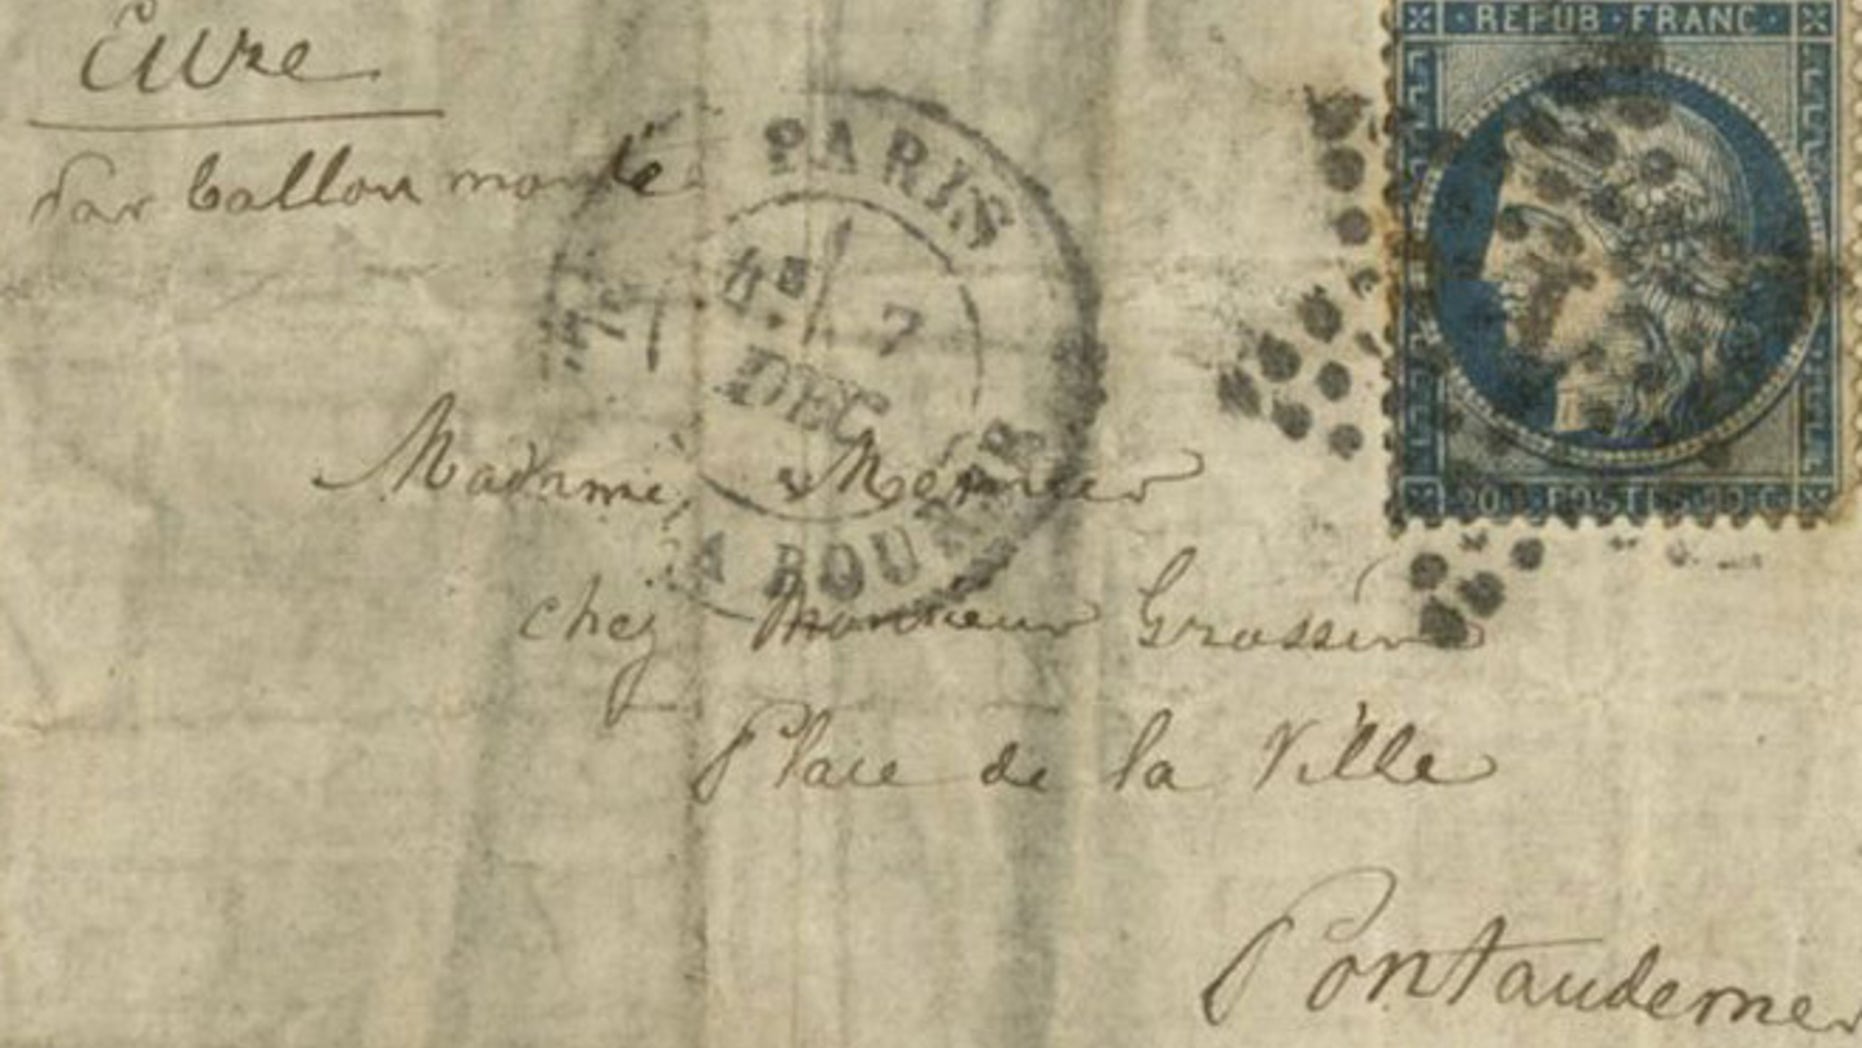 Eure
REPUB · FRANC
par ballon monté
PARIS
4E 7
DEC
Madame,
chez Monsieur Grossin
Place de la Ville
20 C POSTES 20 C
Pontaudemer